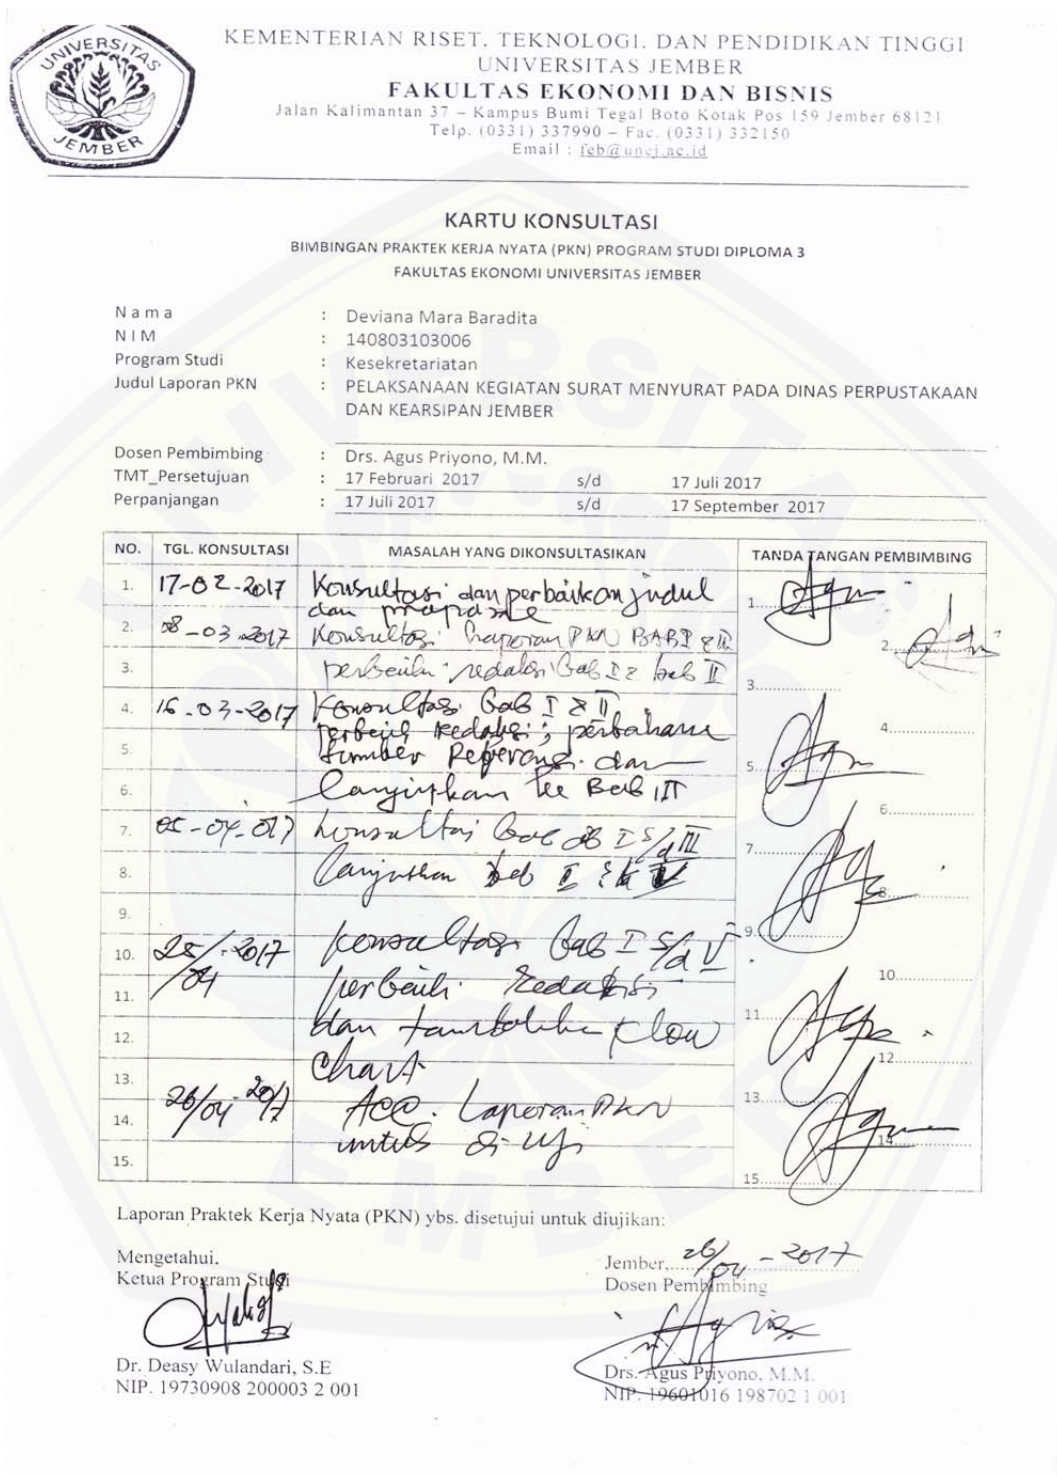 UNIVERSITAS
JEMBER
KEMENTERIAN RISET, TEKNOLOGI, DAN PENDIDIKAN TINGGI
UNIVERSITAS JEMBER
FAKULTAS EKONOMI DAN BISNIS
Jalan Kalimantan 37 – Kampus Bumi Tegal Boto Kotak Pos 159 Jember 68121
Telp. (0331) 337990 – Fac. (0331) 332150
Email : feb@unej.ac.id
KARTU KONSULTASI
BIMBINGAN PRAKTEK KERJA NYATA (PKN) PROGRAM STUDI DIPLOMA 3
FAKULTAS EKONOMI UNIVERSITAS JEMBER
N a m a : Deviana Mara Baradita
N I M : 140803103006
Program Studi : Kesekretariatan
Judul Laporan PKN : PELAKSANAAN KEGIATAN SURAT MENYURAT PADA DINAS PERPUSTAKAAN
DAN KEARSIPAN JEMBER
Dosen Pembimbing : Drs. Agus Priyono, M.M.
TMT_Persetujuan : 17 Februari 2017 s/d 17 Juli 2017
Perpanjangan : 17 Juli 2017 s/d 17 September 2017
NO. TGL. KONSULTASI MASALAH YANG DIKONSULTASIKAN TANDA TANGAN PEMBIMBING
1. 17-02-2017 Konsultasi dan perbaikan judul 1
dan
2. 08-03-2017 Konsultasi Laporan PKN BAB I & II 2
3. redaksi bab I & bab II 3
4. 16-03-2017 Konsultasi bab I & II 4
redaksi;
5. Sumber dan 5
6. lanjutkan ke Bab III 6
7. 05-04-017 konsultasi bab I s/d III 7
8. lanjutkan bab 8
9. 9
10. 25/04-2017 konsultasi bab I s/d V 10
11. perbaiki redaksi 11
12. dan flow 12
13. Chart 13
14. 26/04-2017 Acc. Laporan PKN 14
untuk di-uji
15. 15
Laporan Praktek Kerja Nyata (PKN) ybs. disetujui untuk diujikan:
Mengetahui,
Ketua Program Studi
Jember, 26/04-2017
Dosen Pembimbing
Dr. Deasy Wulandari, S.E
NIP. 19730908 200003 2 001
Drs. Agus Priyono, M.M.
NIP. 19601016 198702 1 001